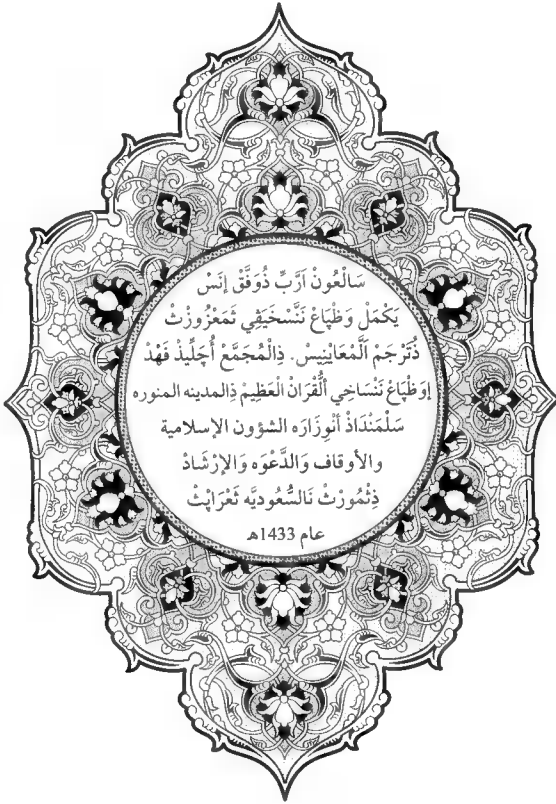 سَالْعُونْ آرَبِّ ذُوَفَّقْ إِنَسْ
يَكْمَلْ وَظْبَاعْ نَنَّسْخَيَڤِي تَمَعْزُوزْتْ
ذُتَرْجَمْ اَلْمَعَايْنِيسْ. ذِالْمُجَمَّعْ أُجَلِّيذْ فَهْدْ
إِوَظْبَاعْ نَنْسَاخِي اَلْقُرَانْ الْعَظِيمْ ذِالمدينه المنوره
سَلْمَنْدَاذْ أَنْوِزَارَه الشؤون الإسلامية
والأوقاف وَالدَّعْوَه وَالإِرْشَادْ
ذِثْمُورْثْ نَالسُّعُوديَّه ثَعْرَابْثْ
عام 1433هـ